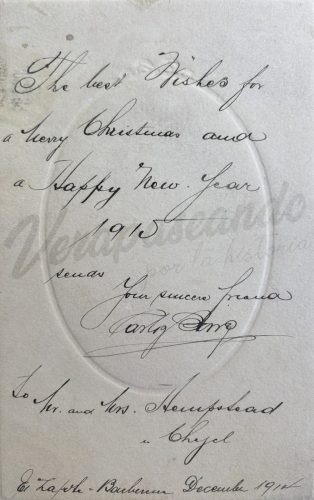 The best Wishes for
a merry Christmas and
a Happy New Year
1915
sends
Your sincere friend
Carlos
to Mr. and Mrs. Hempstead
in Chajel
El Zapote - Barberena December 1914
Verapaseando
por la historia